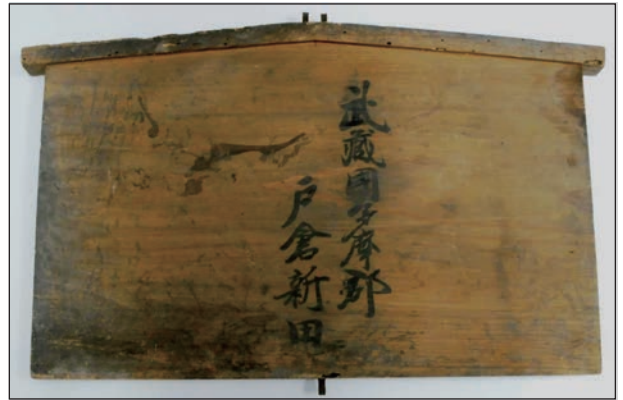 武藏国多摩郡
戸倉新田